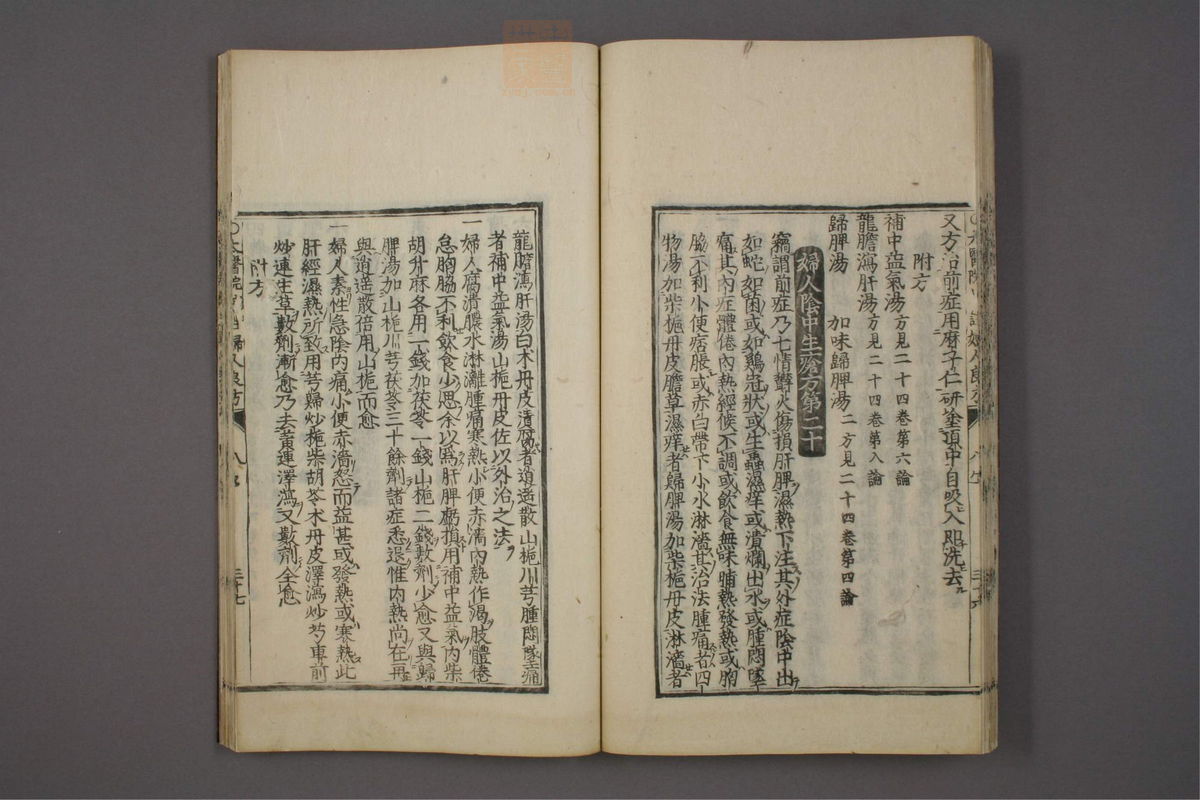 又方治前症用麻子仁研塗頂中自吸入即洗去
附方
補中益氣湯方見二十四卷第六論
龍膽瀉肝湯方見二十四卷第八論
歸脾湯 加味歸脾湯二方見二十四卷第四論
婦人陰中生瘡方第二十
竊謂前症乃七情鬱火傷損肝脾濕熱下注其外症陰中出
如蛇如菌或如鷄冠狀或生蟲濕痒或潰爛出水或腫悶墜
痛其內症體倦內熱經候不調或飲食無味晡熱發熱或胸
脇不利小便痞脹或赤白帶下小水淋濇其治法腫痛者四
物湯加柴梔丹皮膽草濕痒者歸脾湯加柴梔丹皮淋濇者
龍膽瀉肝湯白木丹皮潰腐者逍遙散山梔川芎腫悶墜痛
者補中益氣湯山梔丹皮佐以外治之法
一婦人腐潰膿水淋漓腫痛寒熱小便赤濇內熱作渴肢體倦
怠胸脇不利飲食少思余以爲肝脾虧損用補中益氣內柴
胡升麻各用一錢加茯苓一錢山梔二錢數劑少愈又與歸
脾湯加山梔川芎茯苓三十餘劑諸症悉退惟內熱尚在再
與逍遙散倍用山梔而愈
一婦人素性急陰內痛小便赤濇怒而益甚或發熱或寒熱此
肝經濕熱所致用芎歸炒梔柴胡苓木丹皮澤瀉炒芍車前
炒連生草數劑漸愈乃去黃連澤瀉又數劑全愈
附方